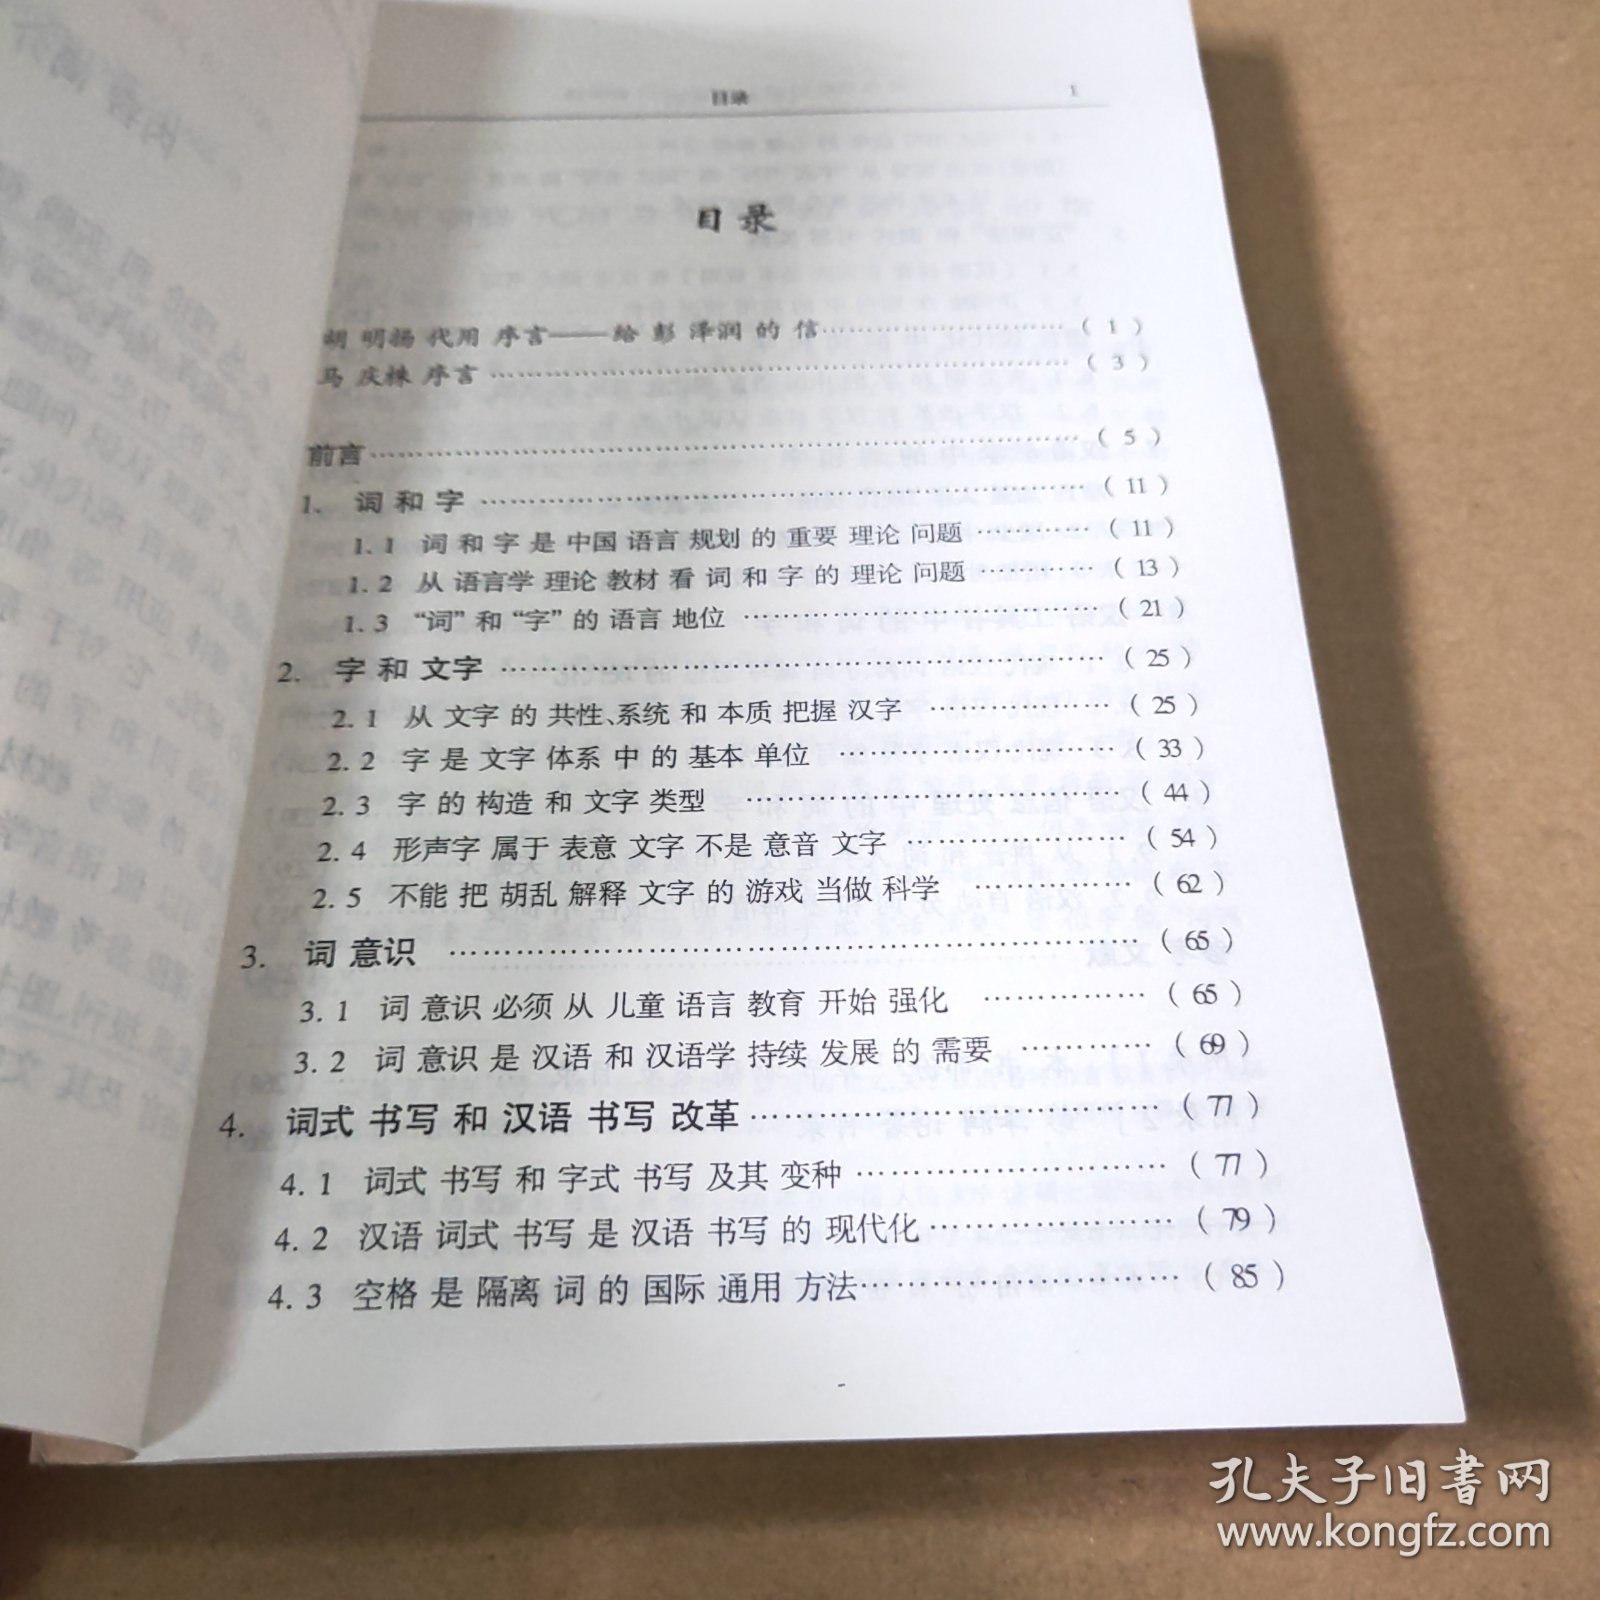 目录 1
目 录
胡 明扬 代用 序言——给 彭 泽润 的 信………………………( 1 )
马 庆株 序言………………………………………………( 3 )
前言………………………………………………………( 5 )
1. 词 和 字 ………………………………………………( 11 )
1. 1 词 和 字 是 中国 语言 规划 的 重要 理论 问题 …………( 11 )
1. 2 从 语言学 理论 教材 看 词 和 字 的 理论 问题 …………( 13 )
1. 3 “词” 和 “字” 的 语言 地位 ………………………………( 21 )
2. 字 和 文字 ………………………………………………( 25 )
2. 1 从 文字 的 共性、系统 和 本质 把握 汉字 ………………( 25 )
2. 2 字 是 文字 体系 中 的 基本 单位 ………………………( 33 )
2. 3 字 的 构造 和 文字 类型 ………………………………( 44 )
2. 4 形声字 属于 表意 文字 不是 意音 文字 …………………( 54 )
2. 5 不能 把 胡乱 解释 文字 的 游戏 当做 科学 ……………( 62 )
3. 词 意识 …………………………………………………( 65 )
3. 1 词 意识 必须 从 儿童 语言 教育 开始 强化 ……………( 65 )
3. 2 词 意识 是 汉语 和 汉语学 持续 发展 的 需要 …………( 69 )
4. 词式 书写 和 汉语 书写 改革………………………………( 77 )
4. 1 词式 书写 和 字式 书写 及其 变种………………………( 77 )
4. 2 汉语 词式 书写 是 汉语 书写 的 现代化…………………( 79 )
4. 3 空格 是 隔离 词 的 国际 通用 方法………………………( 85 )
孔夫子旧书网
www.kongfz.com